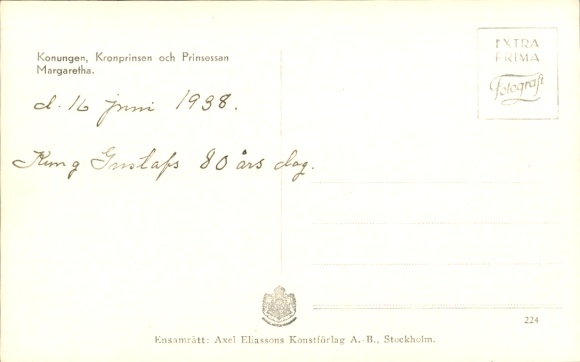 Konungen, Kronprinsen och Prinsessan
Margaretha.
EXTRA
PRIMA
Fotografi
d. 16 juni 1938.
Kung Gustafs 80 års dag.
224
Ensamrätt: Axel Eliassons Konstförlag A.-B., Stockholm.